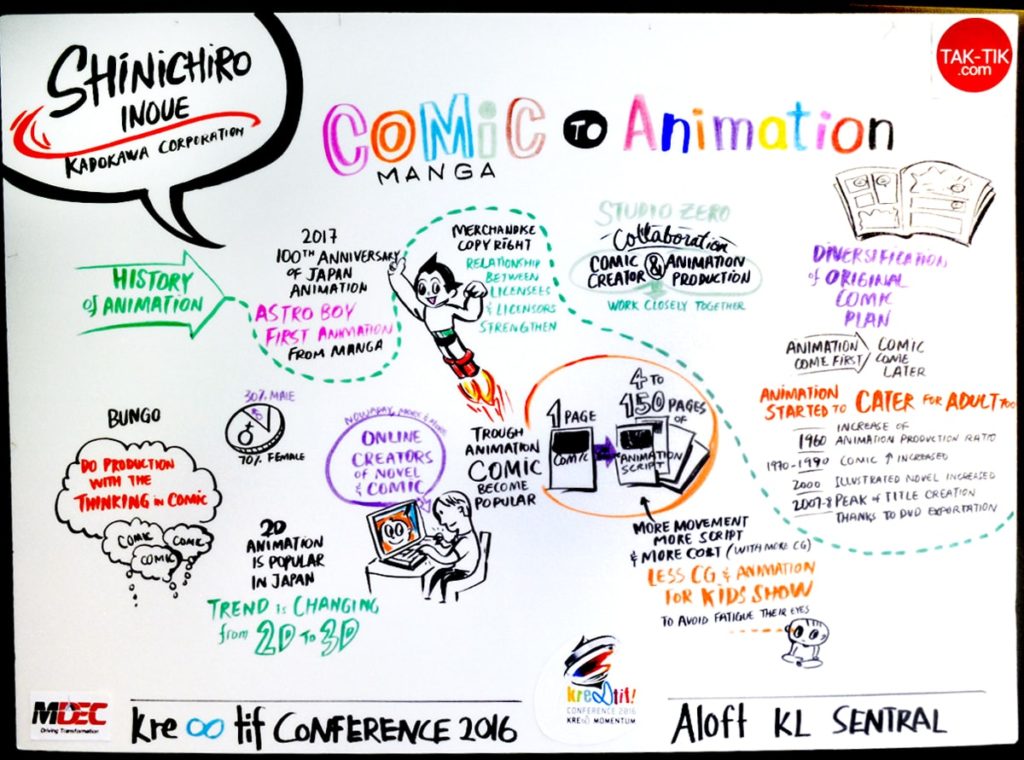 SHiNiCHiRO
INOUE
KADOKAWA CORPORATION
TAK-TIK
.com
COMiC TO Animation
MANGA
HISTORY
of ANIMATION
2017
100TH ANNIVERSARY
OF JAPAN
ANIMATION
ASTRO BOY
FIRST ANIMATION
FROM MANGA
MERCHANDISE
COPYRIGHT
RELATIONSHIP
BETWEEN
LICENSEES
& LICENSORS
STRENGTHEN
STUDIO ZERO
Collaboration
COMIC CREATOR & ANIMATION PRODUCTION
WORK CLOSELY TOGETHER
DIVERSIFICATION
of ORIGINAL
COMIC
PLAN
ANIMATION
COME FIRST
COMIC
COME
LATER
ANIMATION
STARTED TO CATER FOR ADULT TOO
1960 INCREASE OF
ANIMATION PRODUCTION RATIO
1970-1990 COMIC ↑ INCREASED
2000 ILLUSTRATED NOVEL INCREASED
2007-8 PEAK of TITLE CREATION
THANKS TO DVD EXPORTATION
BUNGO
DO PRODUCTION
WITH THE
THINKING in COMIC
COMIC
COMIC
COMIC
30% MALE
70% FEMALE
NOWADAY, MORE & MORE
ONLINE
CREATORS
OF NOVEL
& COMIC
2D
ANIMATION
IS POPULAR
IN JAPAN
TREND is CHANGING
from 2D TO 3D
TROUGH
ANIMATION
COMIC
BECOME
POPULAR
1 PAGE
COMIC
4 TO
150 PAGES
OF
ANIMATION
SCRIPT
MORE MOVEMENT
MORE SCRIPT
& MORE COST (WITH MORE CG)
LESS CG & ANIMATION
FOR KIDS SHOW
TO AVOID FATIGUE THEIR EYES
MDEC
Driving Transformation
kre∞tif CONFERENCE 2016
kre∞tif!
CONFERENCE 2016
KRE∞ MOMENTUM
Aloft KL SENTRAL